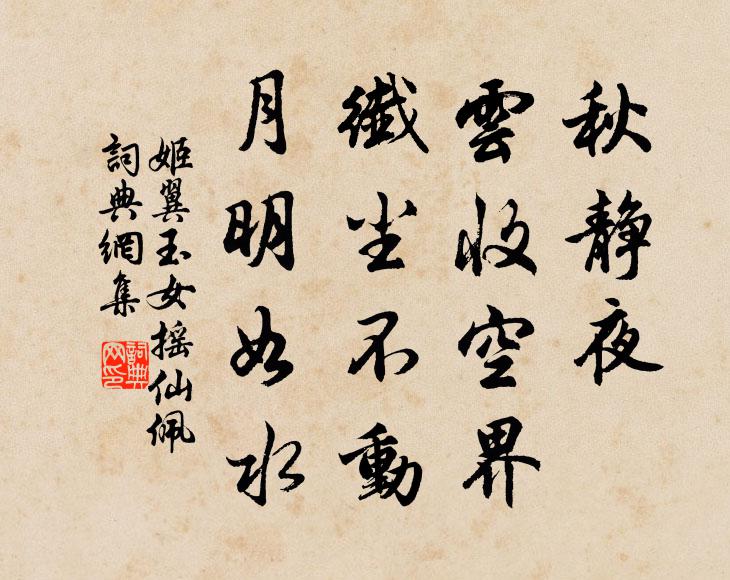 秋静夜
雲收空界
纖尘不動
月明如水
姬翼玉女摇仙佩
詞典網集
詞典
网印